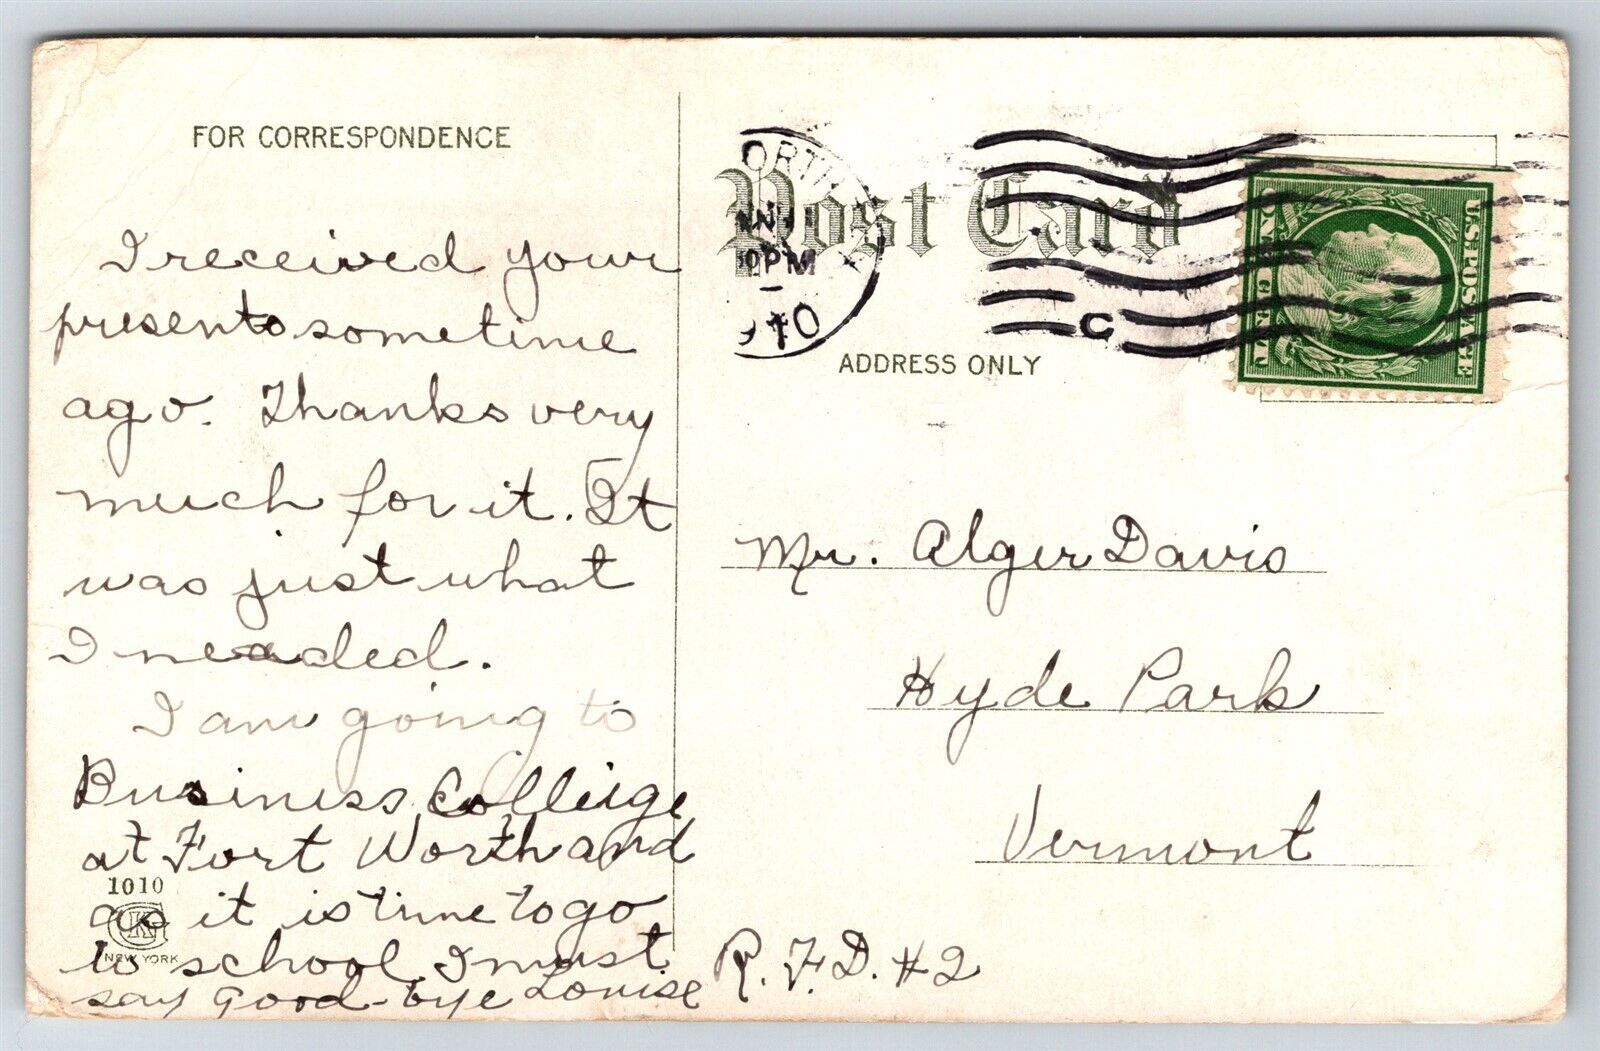 FOR CORRESPONDENCE
I received your
presents sometime
ago. Thanks very
much for it. It
was just what
I needed.
I am going to
Business Colleige
at Fort Worth and
as it is time to go
to school I must
say Good-bye Louise
1010
NEW YORK
Post Card
ADDRESS ONLY
ORTH
PM
10
C
U.S. POSTAGE
ONE CENT
Mr. Alger Davis
Hyde Park
Vermont
R.F.D. #2